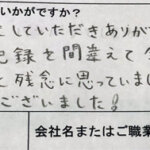 いかがですか？
していただきありが
記録を間違えて
と残念に思っていまし
ございました！
会社名またはご職業